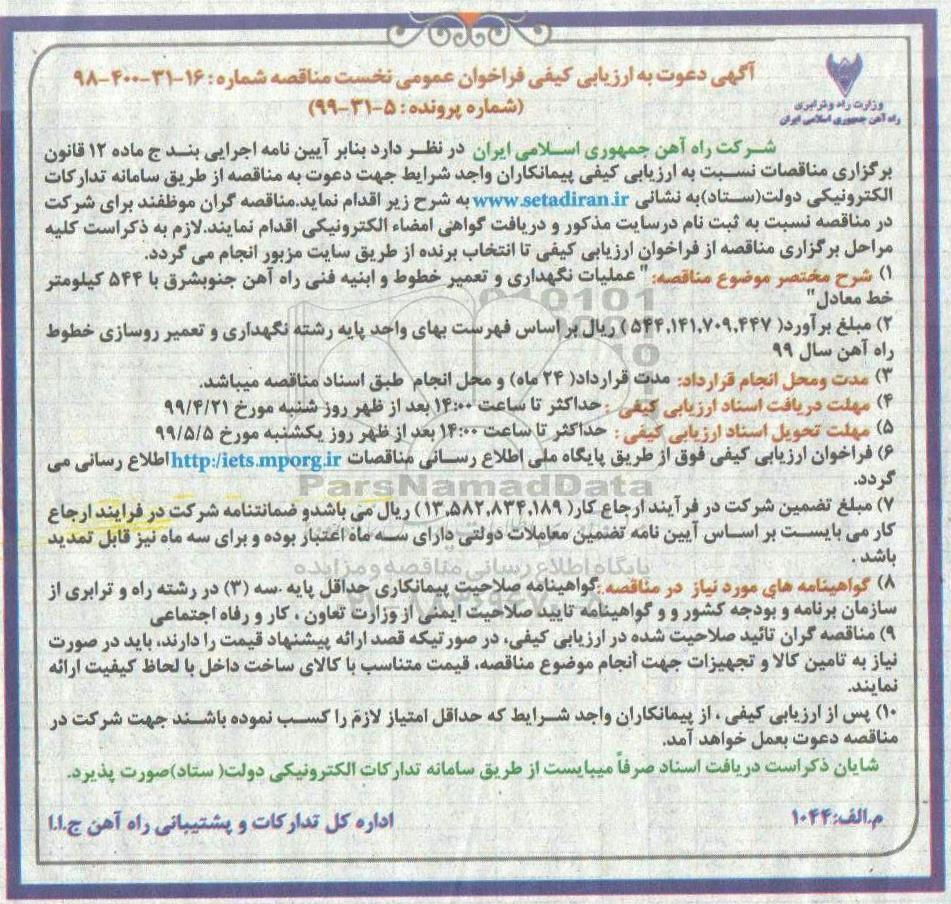 آگهی دعوت به ارزیابی کیفی فراخوان عمومی نخست مناقصه شماره : ۱۶-۳۱-۴۰۰-۹۸
(شماره پرونده : ۵-۳۱-۹۹)
وزارت راه و ترابری
راه آهن جمهوری اسلامی ایران
شرکت راه آهن جمهوری اسلامی ایران در نظر دارد بنابر آیین نامه اجرایی بند ج ماده ۱۲ قانون
برگزاری مناقصات نسبت به ارزیابی کیفی پیمانکاران واجد شرایط جهت دعوت به مناقصه از طریق سامانه تدارکات
الکترونیکی دولت(ستاد)به نشانی www.setadiran.ir به شرح زیر اقدام نماید.مناقصه گران موظفند برای شرکت
در مناقصه نسبت به ثبت نام درسایت مذکور و دریافت گواهی امضاء الکترونیکی اقدام نمایند.لازم به ذکراست کلیه
مراحل برگزاری مناقصه از فراخوان ارزیابی کیفی تا انتخاب برنده از طریق سایت مزبور انجام می گردد.
۱) شرح مختصر موضوع مناقصه: " عملیات نگهداری و تعمیر خطوط و ابنیه فنی راه آهن جنوبشرق با ۵۴۴ کیلومتر
خط معادل"
۲) مبلغ برآورد( ۵۴۴,۱۴۱,۷۰۹,۴۴۷ ) ریال بر اساس فهرست بهای واحد پایه رشته نگهداری و تعمیر روسازی خطوط
راه آهن سال ۹۹
۳) مدت ومحل انجام قرارداد: مدت قرارداد( ۲۴ ماه) و محل انجام طبق اسناد مناقصه میباشد.
۴) مهلت دریافت اسناد ارزیابی کیفی : حداکثر تا ساعت ۱۴:۰۰ بعد از ظهر روز شنبه مورخ ۹۹/۴/۲۱
۵) مهلت تحویل اسناد ارزیابی کیفی : حداکثر تا ساعت ۱۴:۰۰ بعد از ظهر روز یکشنبه مورخ ۹۹/۵/۵
۶) فراخوان ارزیابی کیفی فوق از طریق پایگاه ملی اطلاع رسانی مناقصات http:/iets.mporg.ir اطلاع رسانی می
گردد.
ParsNamadData
۷) مبلغ تضمین شرکت در فرآیند ارجاع کار( ۱۳,۵۸۲,۸۳۴,۱۸۹) ریال می باشدو ضمانتنامه شرکت در فرایند ارجاع
کار می بایست بر اساس آیین نامه تضمین معاملات دولتی دارای سه ماه اعتبار بوده و برای سه ماه نیز قابل تمدید
باشد .
پایگاه اطلاع رسانی مناقصه و مزایده
۸) گواهینامه های مورد نیاز در مناقصه:گواهینامه صلاحیت پیمانکاری حداقل پایه .سه (۳) در رشته راه و ترابری از
سازمان برنامه و بودجه کشور و و گواهینامه تایید صلاحیت ایمنی از وزارت تعاون ، کار و رفاه اجتماعی
۹) مناقصه گران تائید صلاحیت شده در ارزیابی کیفی، در صورتیکه قصد ارائه پیشنهاد قیمت را دارند، باید در صورت
نیاز به تامین کالا و تجهیزات جهت انجام موضوع مناقصه، قیمت متناسب با کالای ساخت داخل با لحاظ کیفیت ارائه
نمایند.
۱۰) پس از ارزیابی کیفی ، از پیمانکاران واجد شرایط که حداقل امتیاز لازم را کسب نموده باشند جهت شرکت در
مناقصه دعوت بعمل خواهد آمد.
شایان ذکراست دریافت اسناد صرفاً میبایست از طریق سامانه تدارکات الکترونیکی دولت( ستاد)صورت پذیرد.
م.الف:۱۰۴۴
اداره کل تدارکات و پشتیبانی راه آهن ج.ا.ا